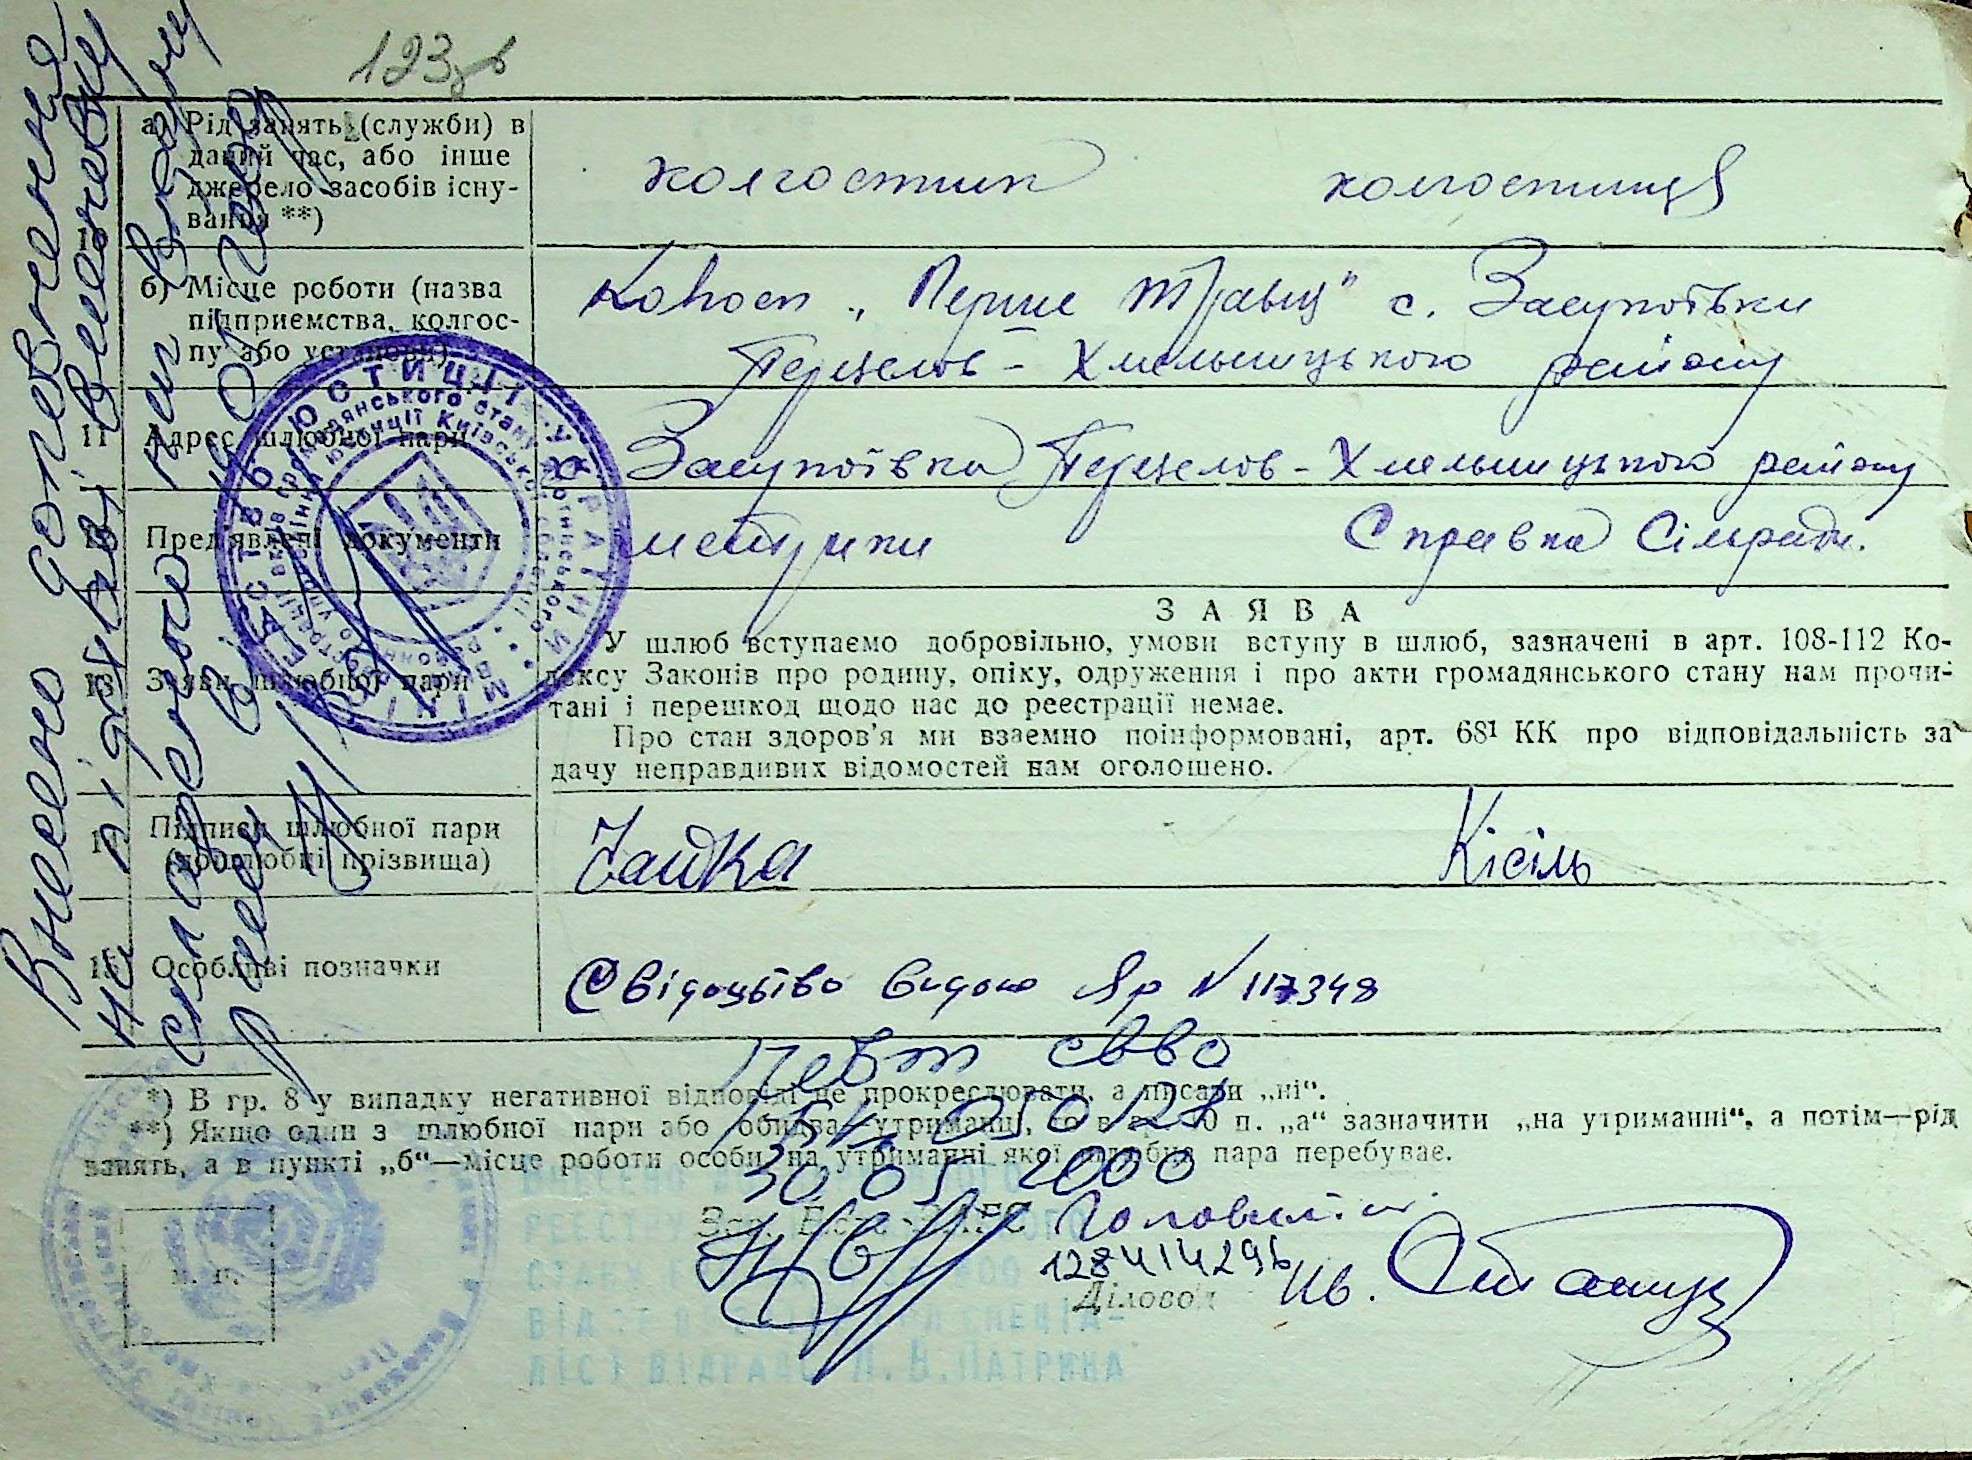 123зв
а) Рід занять (служби) в
даний час, або інше
джерело засобів існу-
вання **)
колгоспник колгоспниця
б) Місце роботи (назва
підприємства, колгос-
пу або установи)
Колгосп „Перше Травня" с. Засупоївки
Переяслов-Хмельницького району
11 Адрес шлюбної пари
с. Засупоївка Переяслов-Хмельницького району
12 Пред'явлені документи
метрики Справка Сільради.
13 Заяви шлюбної пари
ЗАЯВА
У шлюб вступаємо добровільно, умови вступу в шлюб, зазначені в арт. 108-112 Ко-
дексу Законів про родину, опіку, одруження і про акти громадянського стану нам прочи-
тані і перешкод щодо нас до реєстрації немає.
Про стан здоров'я ми взаємно поінформовані, арт. 68¹ КК про відповідальність за
дачу неправдивих відомостей нам оголошено.
14 Підписи шлюбної пари
(дошлюбні прізвища)
Чайка Кісіль
15 Особливі позначки
Свідоцтво видано Яр № 117348
Повт св-во
050128
30.05.2000
*) В гр. 8 у випадку негативної відповіді не прокреслювати, а писати „ні".
**) Якщо один з шлюбної пари або обидва утриманці, то в гр. 10 п. „а" зазначити „на утриманні", а потім—рід
занять, а в пункті „б"—місце роботи особи, на утриманні якої шлюбна пара перебуває.
Зав. Бюро ЗАГС
128414296
Діловод
М. П.
Внесено доповнення
на підставі
складеного
ВНЕСЕНО ДО
РЕЄСТРУ
СПЕЦІА-
ЛІСТ ВІДРАЦС Л. В. ПАТРИНА
МІНІСТЕРСТВО ЮСТИЦІЇ УКРАЇНИ